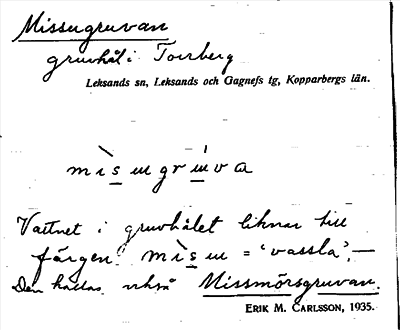 Missugruvan
gruvhål i Torrberg
Leksands sn, Leksands och Gagnefs tg, Kopparbergs län.
mìsɯgrɯ́va
Vattnet i gruvhålet liknar till
färgen mìsɯ = 'vassla', —
Den kallas också Missmörsgruvan.
ERIK M. CARLSSON, 1935.